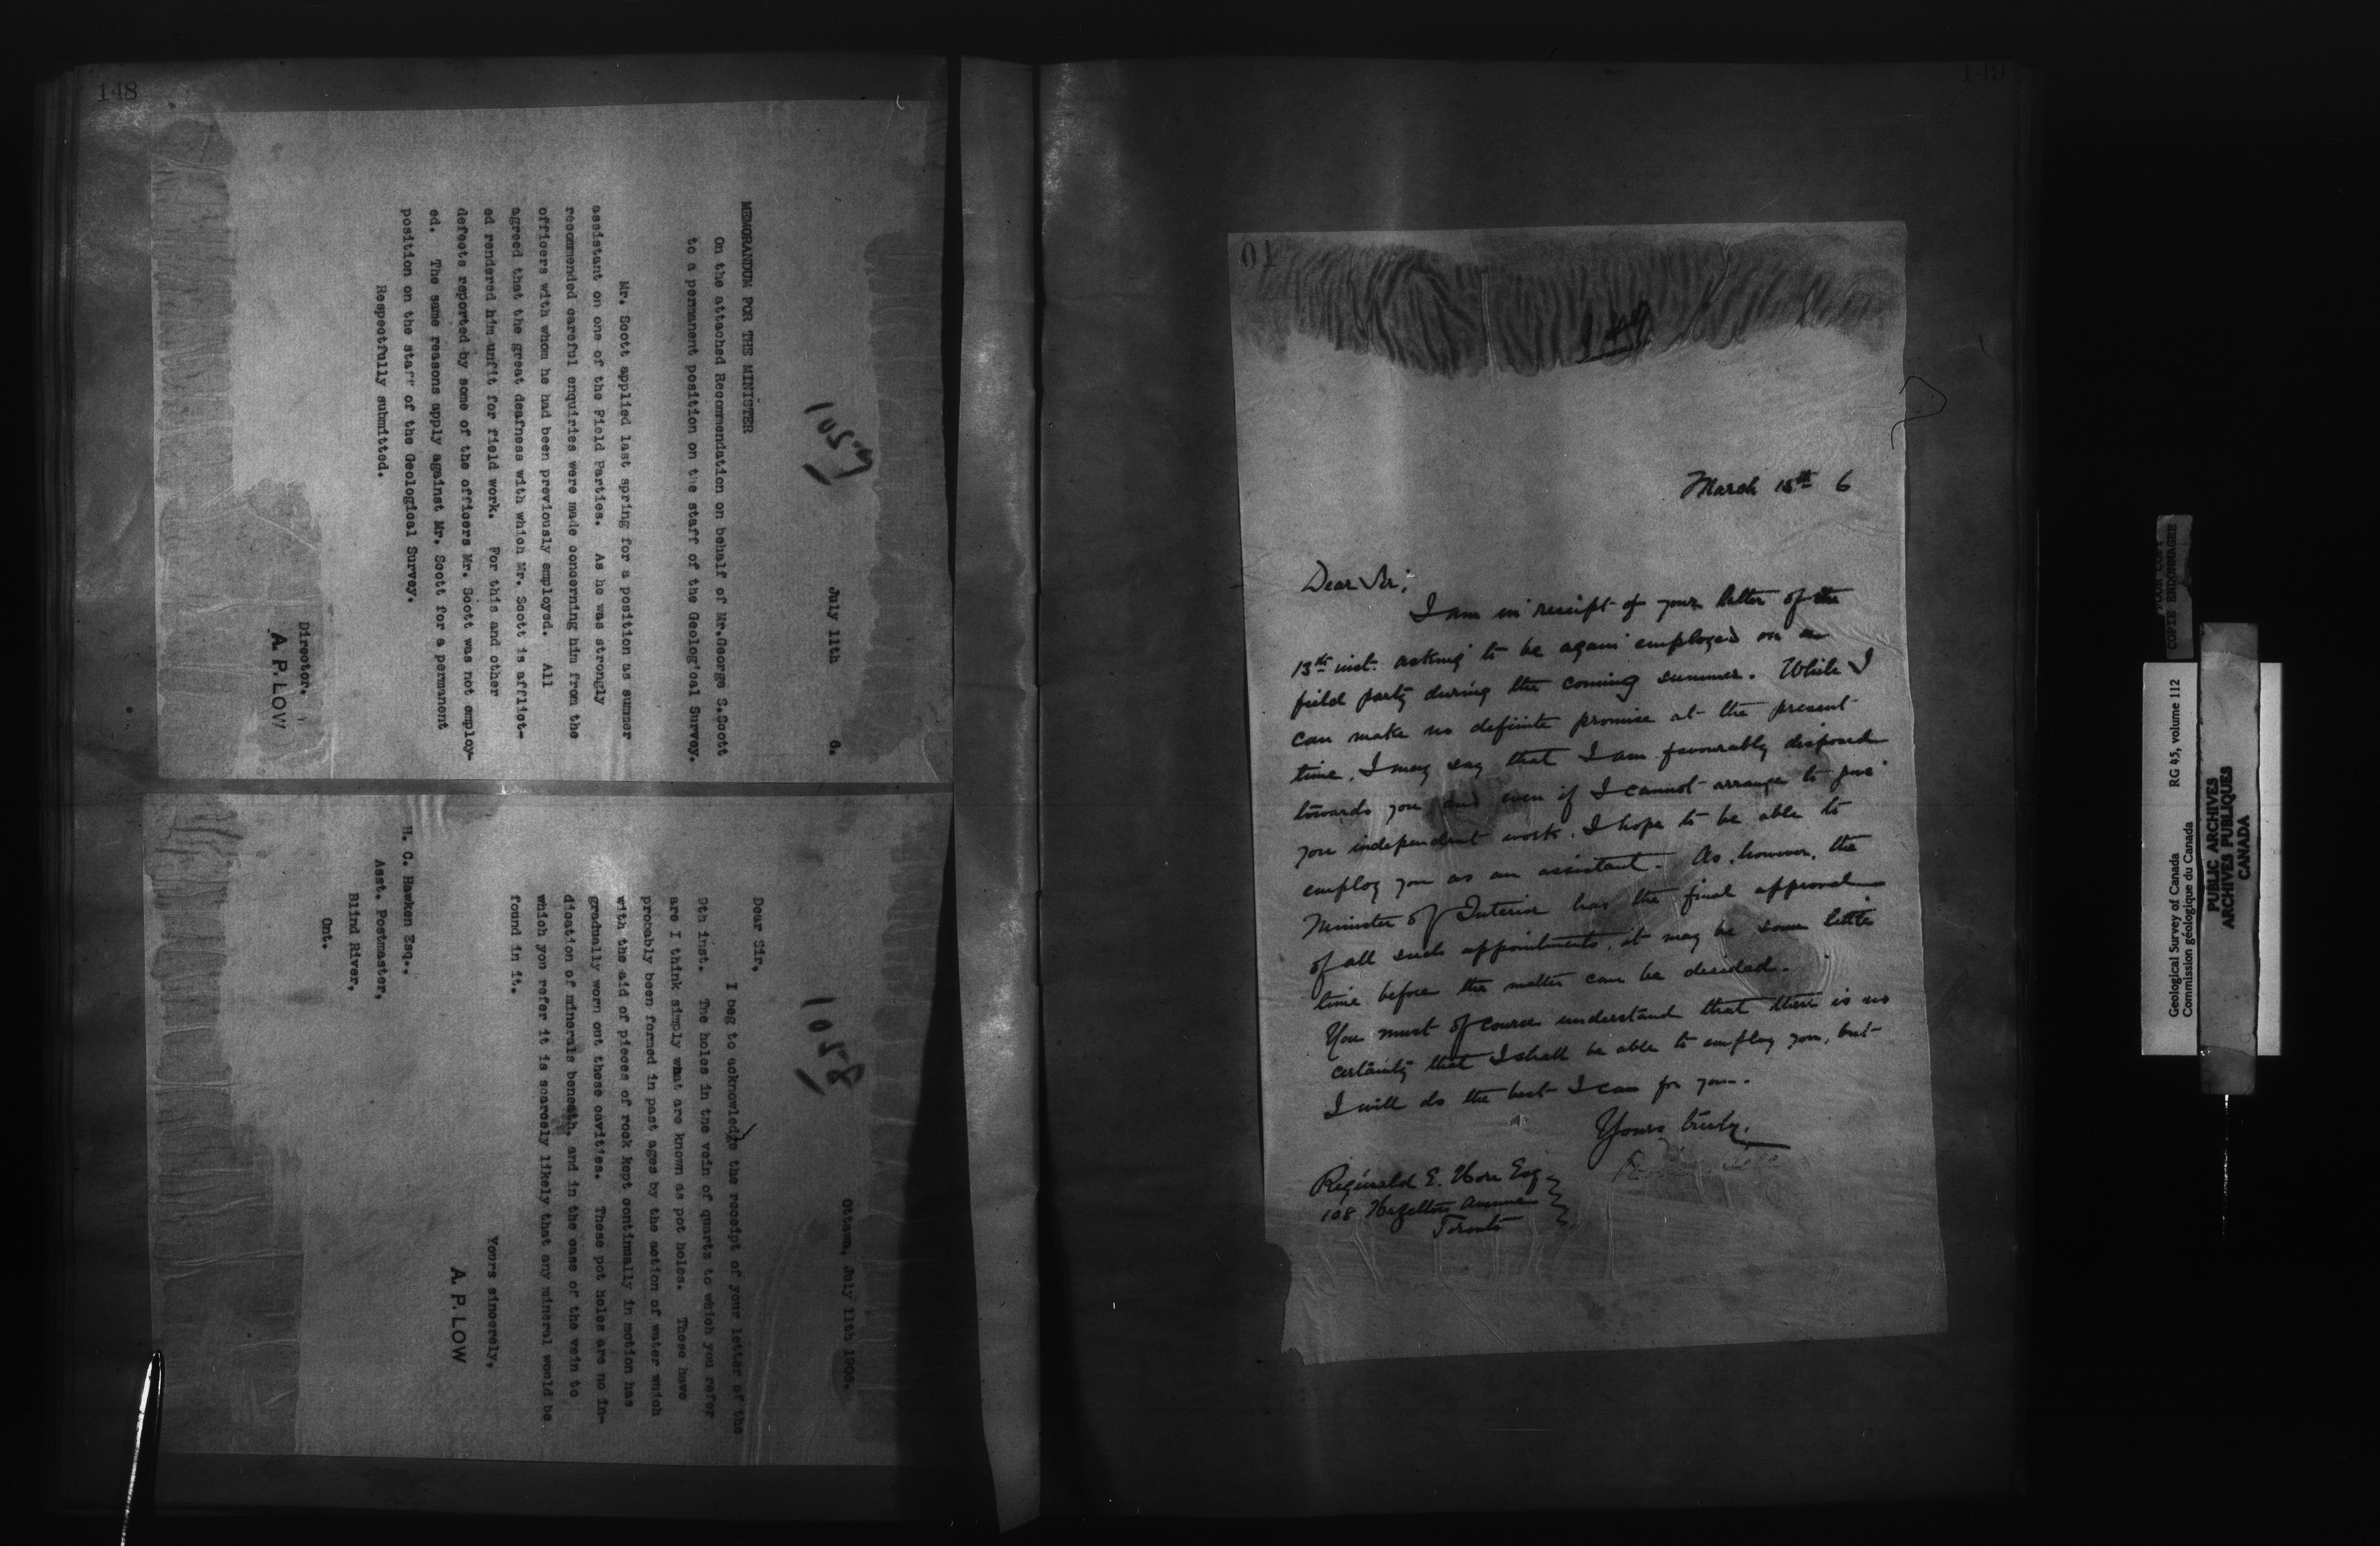 148
1057
July 11th 6.
MEMORANDUM FOR THE MINISTER
On the attached Recommendation on behalf of Mr.George S.Scott
to a permanent position on the staff of the Geological Survey.
Mr. Scott applied last spring for a position as summer
assistant on one of the Field Parties. As he was strongly
recommended careful enquiries were made concerning him from the
officers with whom he had been previously employed. All
agreed that the great deafness with which Mr. Scott is afflict-
ed rendered him unfit for field work. For this and other
defects reported by some of the officers Mr. Scott was not employ-
ed. The same reasons apply against Mr. Scott for a permanent
position on the staff of the Geological Survey.
Respectfully submitted.
Director.
A. P. LOW
1058
Ottawa, July 11th 1906.
Dear Sir,
I beg to acknowledge the receipt of your letter of the
9th inst. The holes in the vein of quartz to which you refer
are I think simply what are known as pot holes. These have
probably been formed in past ages by the action of water which
with the aid of pieces of rock kept continually in motion has
gradually worn out these cavities. These pot holes are no in-
dication of minerals beneath, and in the case of the vein to
which you refer it is scarcely likely that any mineral would be
found in it.
Yours sincerely,
A. P. LOW
H. C. Hawken Esq.,
Asst. Postmaster,
Blind River,
Ont.
149
01
149
March 15th 6
Dear Sir;
I am in receipt of your letter of the
13th inst. asking to be again employed on a
field party during the coming summer. While I
can make no definite promise at the present
time, I may say that I am favourably disposed
towards you and even if I cannot arrange to give
you independent work, I hope to be able to
employ you as an assistant. As, however, the
Minister of Interior has the final approval
of all such appointments, it may be some little
time before the matter can be decided.
You must of course understand that there is no
certainty that I shall be able to employ you, but
I will do the best I can for you.
Yours truly,
Reginald E. Hore Esq
108 Hazelton Avenue
Toronto
COPIE ENDOMMAGÉE
Geological Survey of Canada RG 45, volume 112
Commission géologique du Canada
PUBLIC ARCHIVES
ARCHIVES PUBLIQUES
CANADA